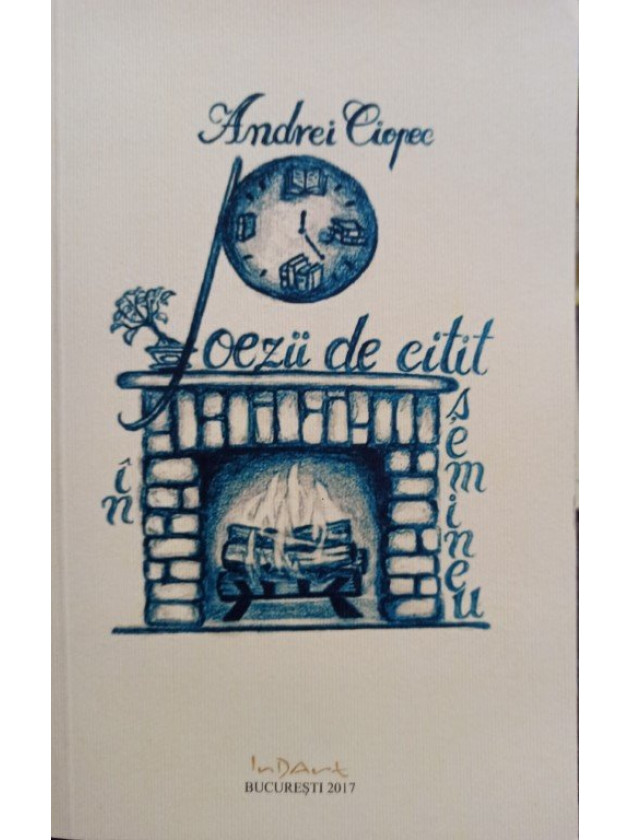 Andrei Ciopec
Poezii de citit
în
șemineu
InDArt
BUCUREȘTI 2017